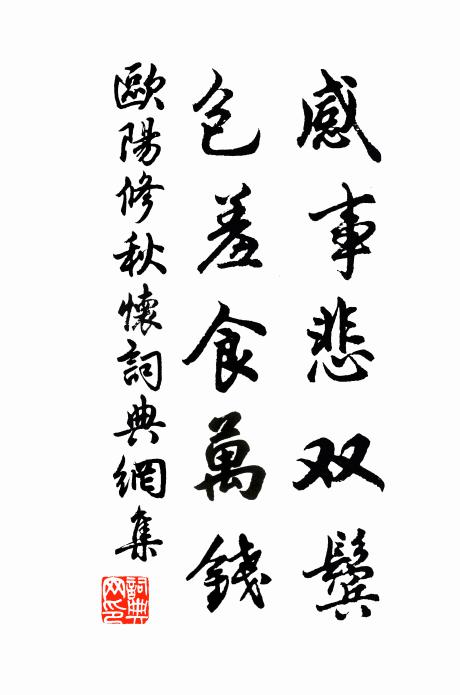 感事悲双鬓
包羞食萬錢
歐陽修秋懷詞典網集
詞典网印